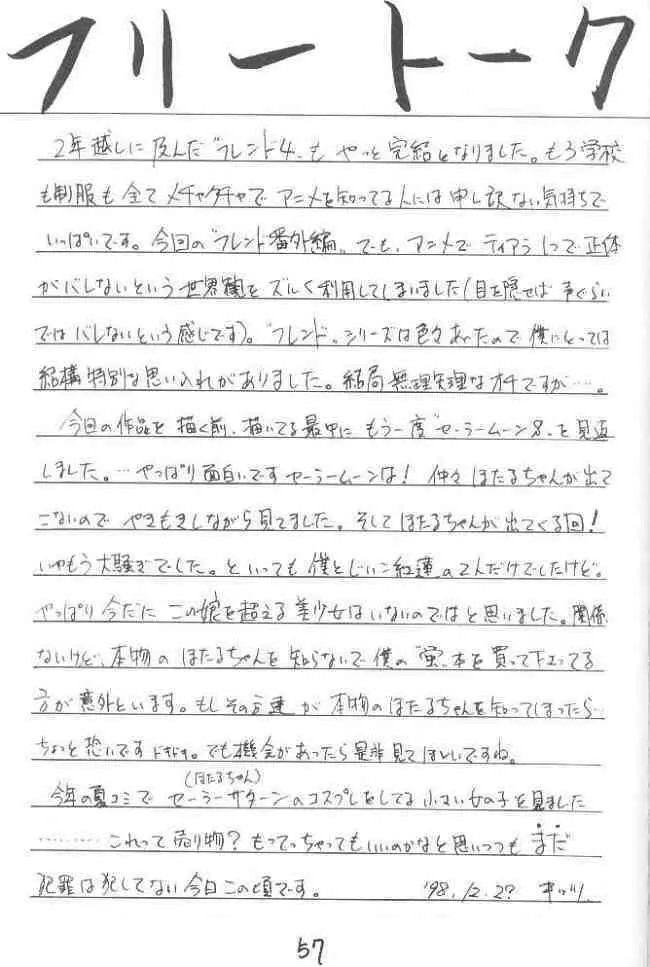 フリートーク
2年越しに及んだ"フレンド4"もやっと完結となりました。もう学校
も制服も全てメチャクチャでアニメを知ってる人には申し訳ない気持ちで
いっぱいです。今回の"フレンド番外編"でも、アニメでティアラ1つで正体
がバレないという世界観をズルく利用してしまいました(目を隠せば声ぐらい
ではバレないという感じです)。"フレンド"シリーズは色々あったので僕にとっては
結構特別な思い入れがありました。結局無理矢理なオチですが…。
今回の作品を描く前、描いてる最中にもう一度"セーラームーンS"を見返
しました。…やっぱり面白いですセーラームーンは!仲々ほたるちゃんが出て
こないのでやきもきしながら見てました。そしてほたるちゃんが出てくる回!
いやもう大騒ぎでした。といっても僕とじいこ紅蓮の2人だけでしたけど。
やっぱり今だにこの娘を超える美少女はいないのではと思いました。関係
ないけど、本物のほたるちゃんを知らないで僕の"蛍"本を買って下さってる
方が意外といます。もしその方達が本物のほたるちゃんを知ってしまったら…
ちょっと恐いですドキドキ。でも機会があったら是非見てほしいですね。
(ほたるちゃん)
今年の夏コミでセーラーサターンのコスプレをしてる小さい女の子を見ました
………これって売り物?もってっちゃってもいいのかなと思いつつもまだ
犯罪は犯してない今日この頃です。 '98.12.27
57